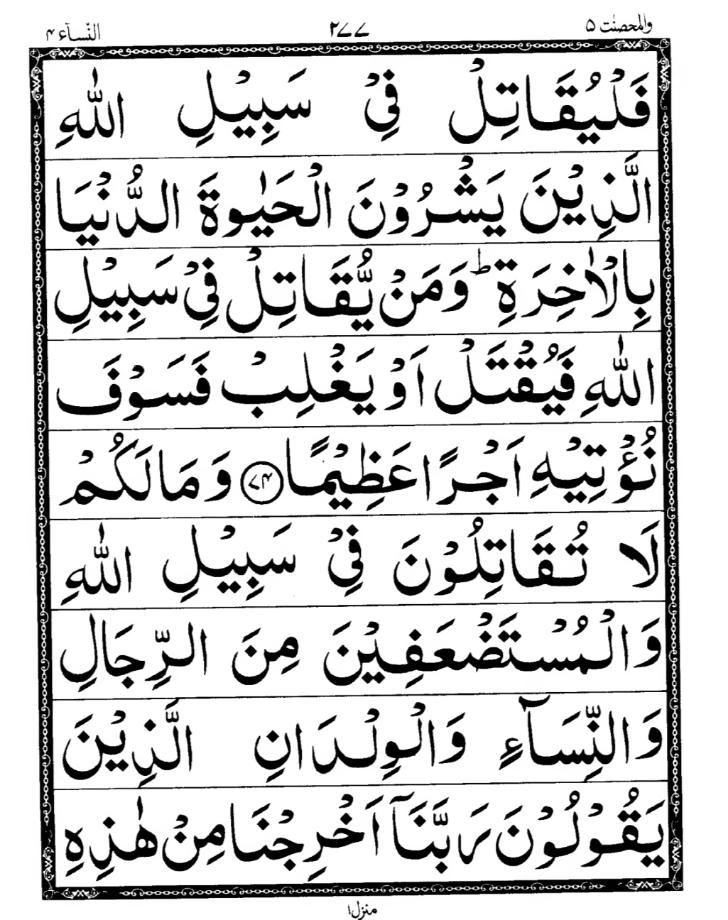 والمحصنٰت ۵ ۲۷۷ النّسآء ۴
فَلْيُقَاتِلْ فِيْ سَبِيْلِ اللّٰهِ
الَّذِيْنَ يَشْرُوْنَ الْحَيٰوةَ الدُّنْيَا
بِالْاٰخِرَةِ ؕ وَمَنْ يُّقَاتِلْ فِيْ سَبِيْلِ
اللّٰهِ فَيُقْتَلْ اَوْ يَغْلِبْ فَسَوْفَ
نُؤْتِيْهِ اَجْرًا عَظِيْمًا ﴿۷۴﴾ وَمَا لَكُمْ
لَا تُقَاتِلُوْنَ فِيْ سَبِيْلِ اللّٰهِ
وَالْمُسْتَضْعَفِيْنَ مِنَ الرِّجَالِ
وَالنِّسَآءِ وَالْوِلْدَانِ الَّذِيْنَ
يَقُوْلُوْنَ رَبَّنَآ اَخْرِجْنَا مِنْ هٰذِهِ
منزل۱